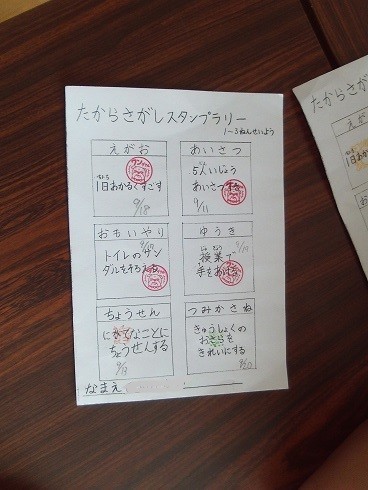 たからさがしスタンプラリー
1~3ねんせいよう
えがお
1日あかるくすごす
9/18
あいさつ
5人いじょう
あいさつする
9/11
おもいやり
トイレのサン
ダルをそろえる
ゆうき
じゅぎょう
授業で
手をあげる
ちょうせん
にがてなことに
ちょうせんする
つみかさね
きゅうしょくの
おさらを
きれいにする
9/20
なまえ
たからさがし